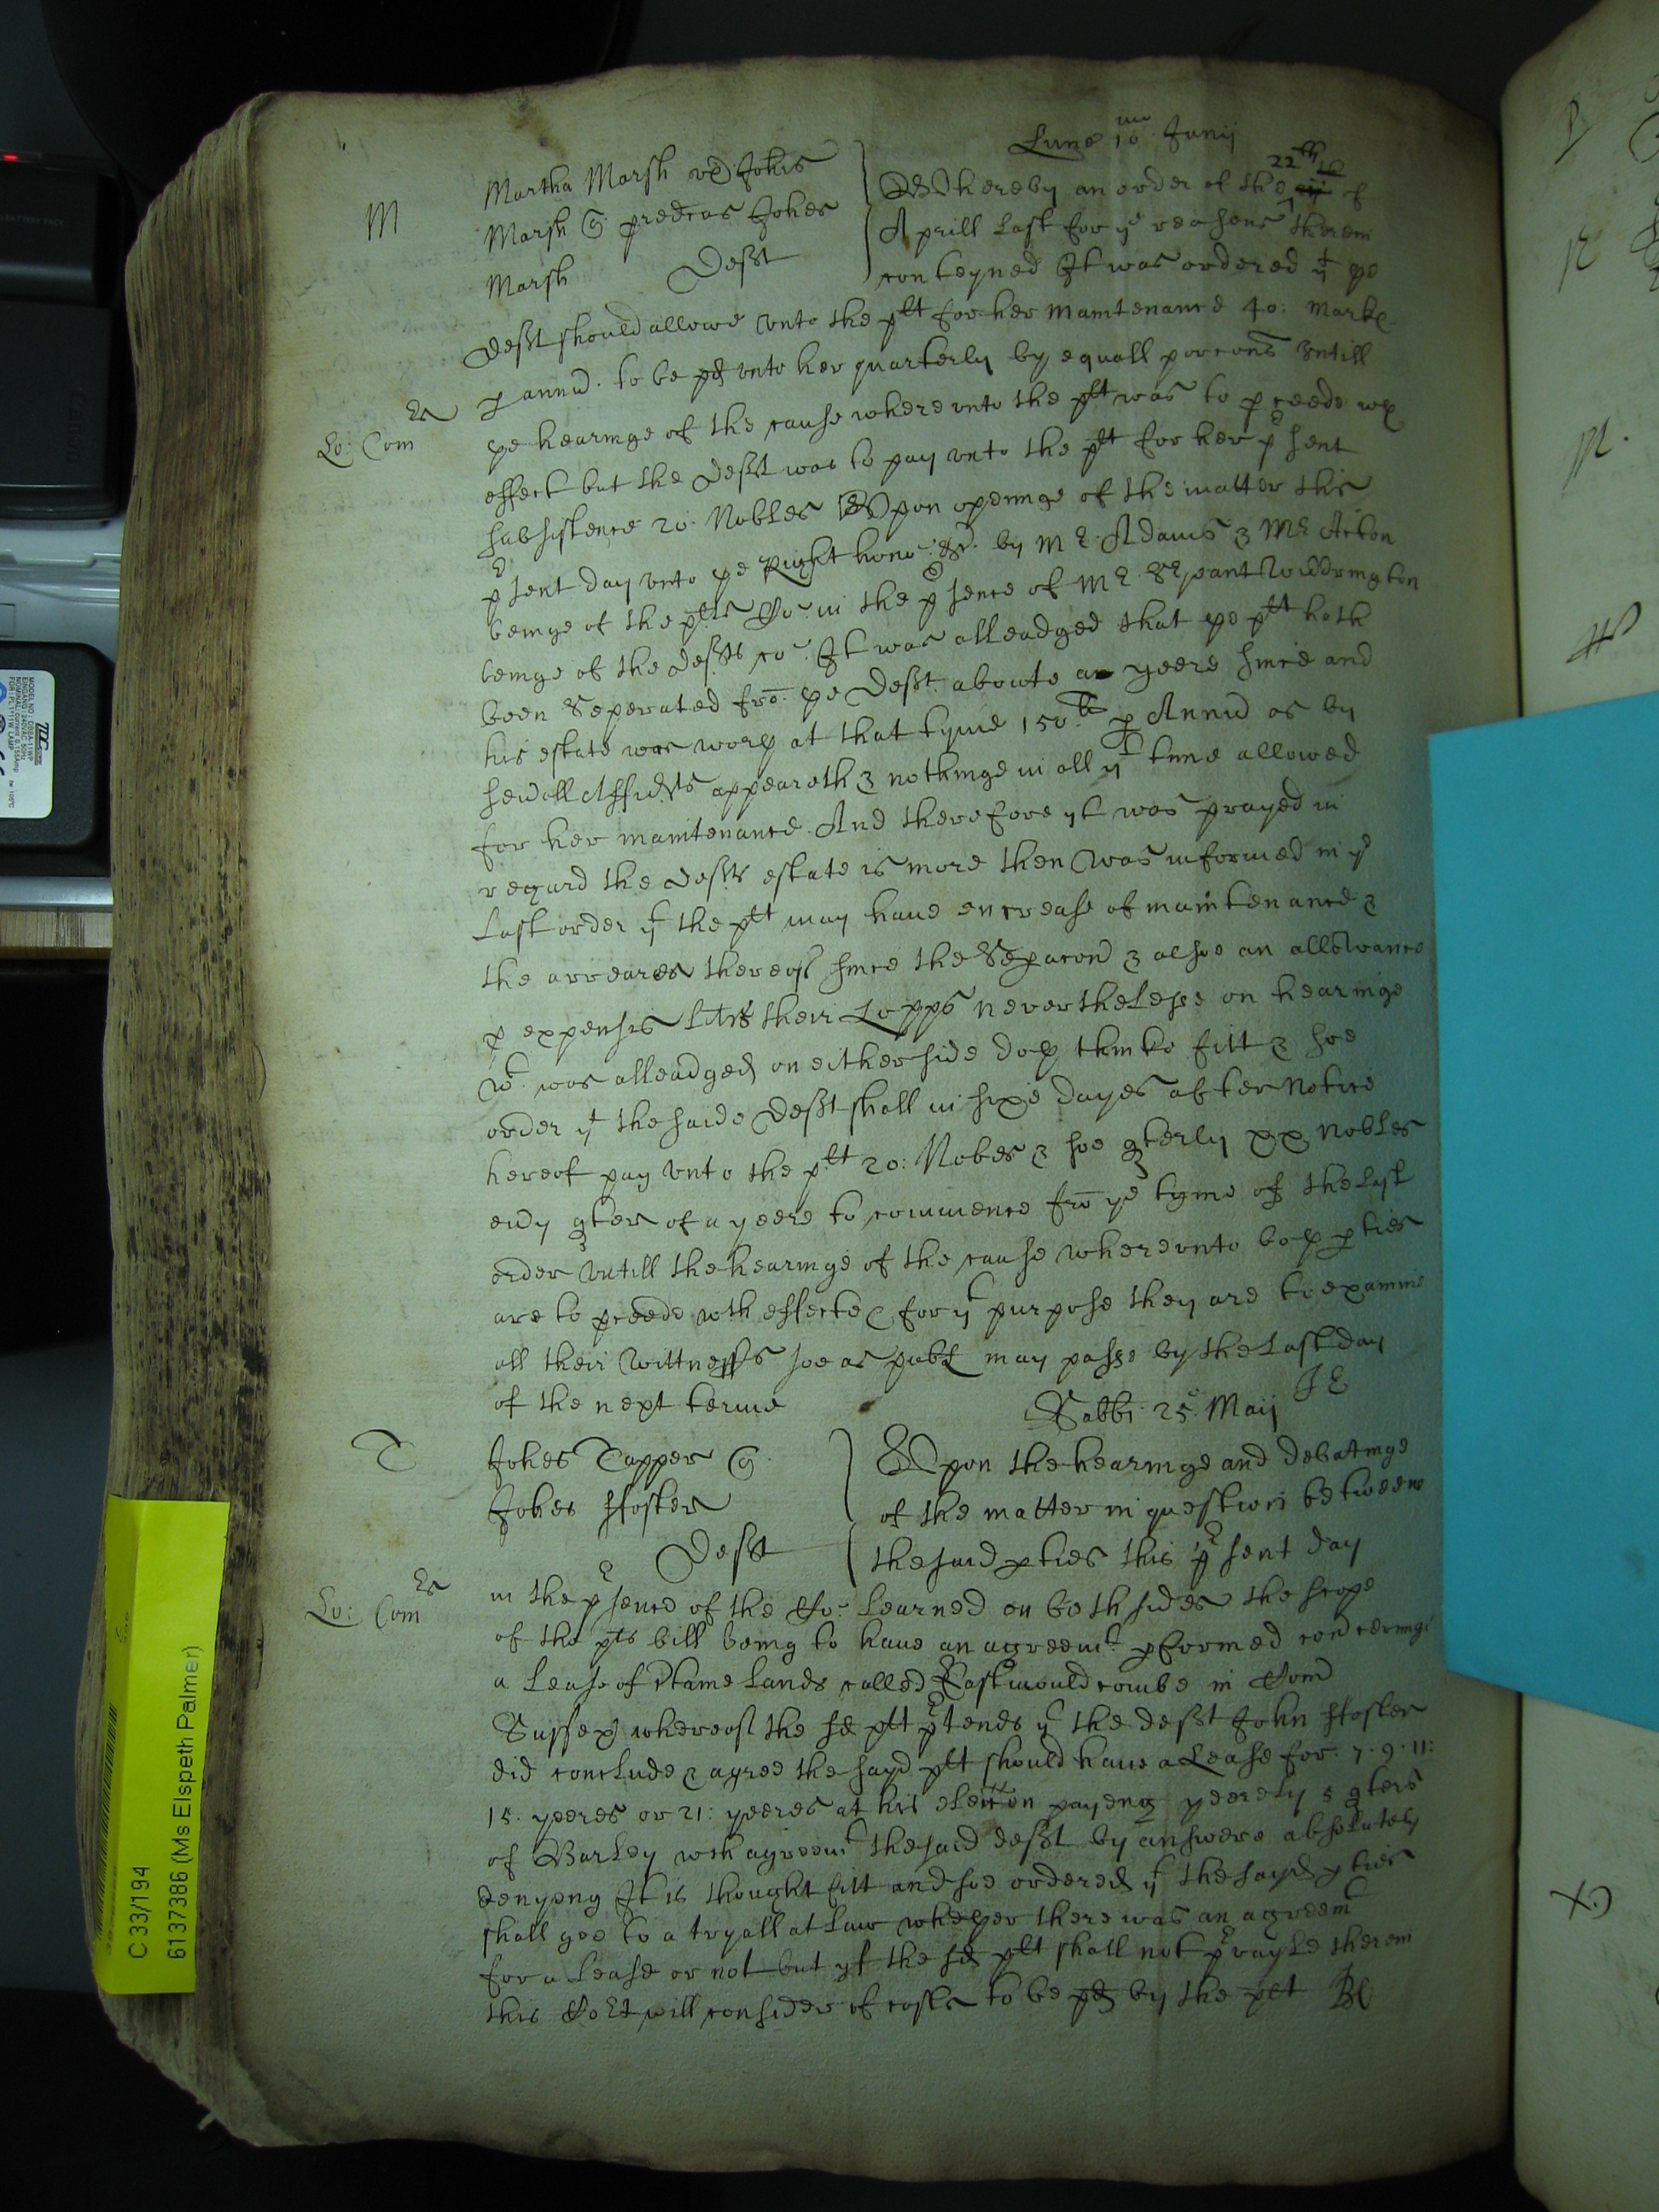 Lune 10mo Junij
M
Martha Marsh vx Johis
Marsh q predcus Johes
Marsh Defft
Whereby an order of the 22th of
Aprill last for ye reasons therein
conteyned It was ordered yt ye
Defft should allowe vnto the plt for her maintenance 40: marks
p annu to be pd vnto her quarterly by equall porcons vntill
Lo: Comrs
ye hearinge of the cause wherevnto the plt was to pceede wth
effect but the Defft was to pay vnto the plt for her psent
subsistence 20 Nobles Vpon openinge of the matter this
psent day vnto ye Right hono: &c. by Mr Adams & Mr Acton
beinge of the plts Co: in the psence of Mr Serjeant Widdrington
beinge of the deffts co: It was alleadged that ye plt hath
been Seperated fro ye Defft aboute a yeere since and
his estate was worth at that tyme 150li p Annu as by
seuall Affidts appeareth & nothinge in all yt time allowed
for her maintenance And therefore yt was prayed in
regard the deffts estate is more then was informed in ye
last order yt the plt may haue encrease of maintenance &
the arreares thereof since the Sepacon & alsoe an allowance
p expenses Litis their Lopps neverthelesse on hearinge
wt was alleadged on either side doth thinke fitt & soe
order yt the saide Defft shall in sixe dayes after notice
hereof pay vnto the plt 20: Nobes & soe qterly xx nobles
eudy qter of a yeere to commence fro ye tyme of the last
order vntill the hearinge of the cause wherevnto both pties
are to pceede wth effecte & for yt purpose they are to examine
all their Wittnesss soe as publ may passe by the last day
of the next terme
JE
Sabbi 25o Maij
T
Johes Tapper q
Johes ffoster
Defft
Vpon the hearinge and debatinge
of the matter in question betweene
the said pties this psent day
Lo: Comrs
in the psence of the Co: learned on both sides the scope
of the pts bill being to haue an agreemt pformed concerninge
a lease of
lands called Eastmouldcombe in Com
Sussex whereof the sd plt ptends yt the defft John ffoster
did conclude & agree the sayd plt should haue a Lease for 7. 9. 11:
15. yeeres or 21: yeeres at his eleccon payeng yeerely 5 qters
of Barley wch agreemt the said defft by answere absolutely
denyeng It is thought fitt and soe ordered yt the sayd pties
shall goe to a tryall at law whether there was an agreemt
for a lease or not but yf the sd plt shall not prayle therein
this Cort will consider of costs to be pd by the plt
C 33/194
6137386 (Ms Elspeth Palmer)
Canon
BATTERY PACK